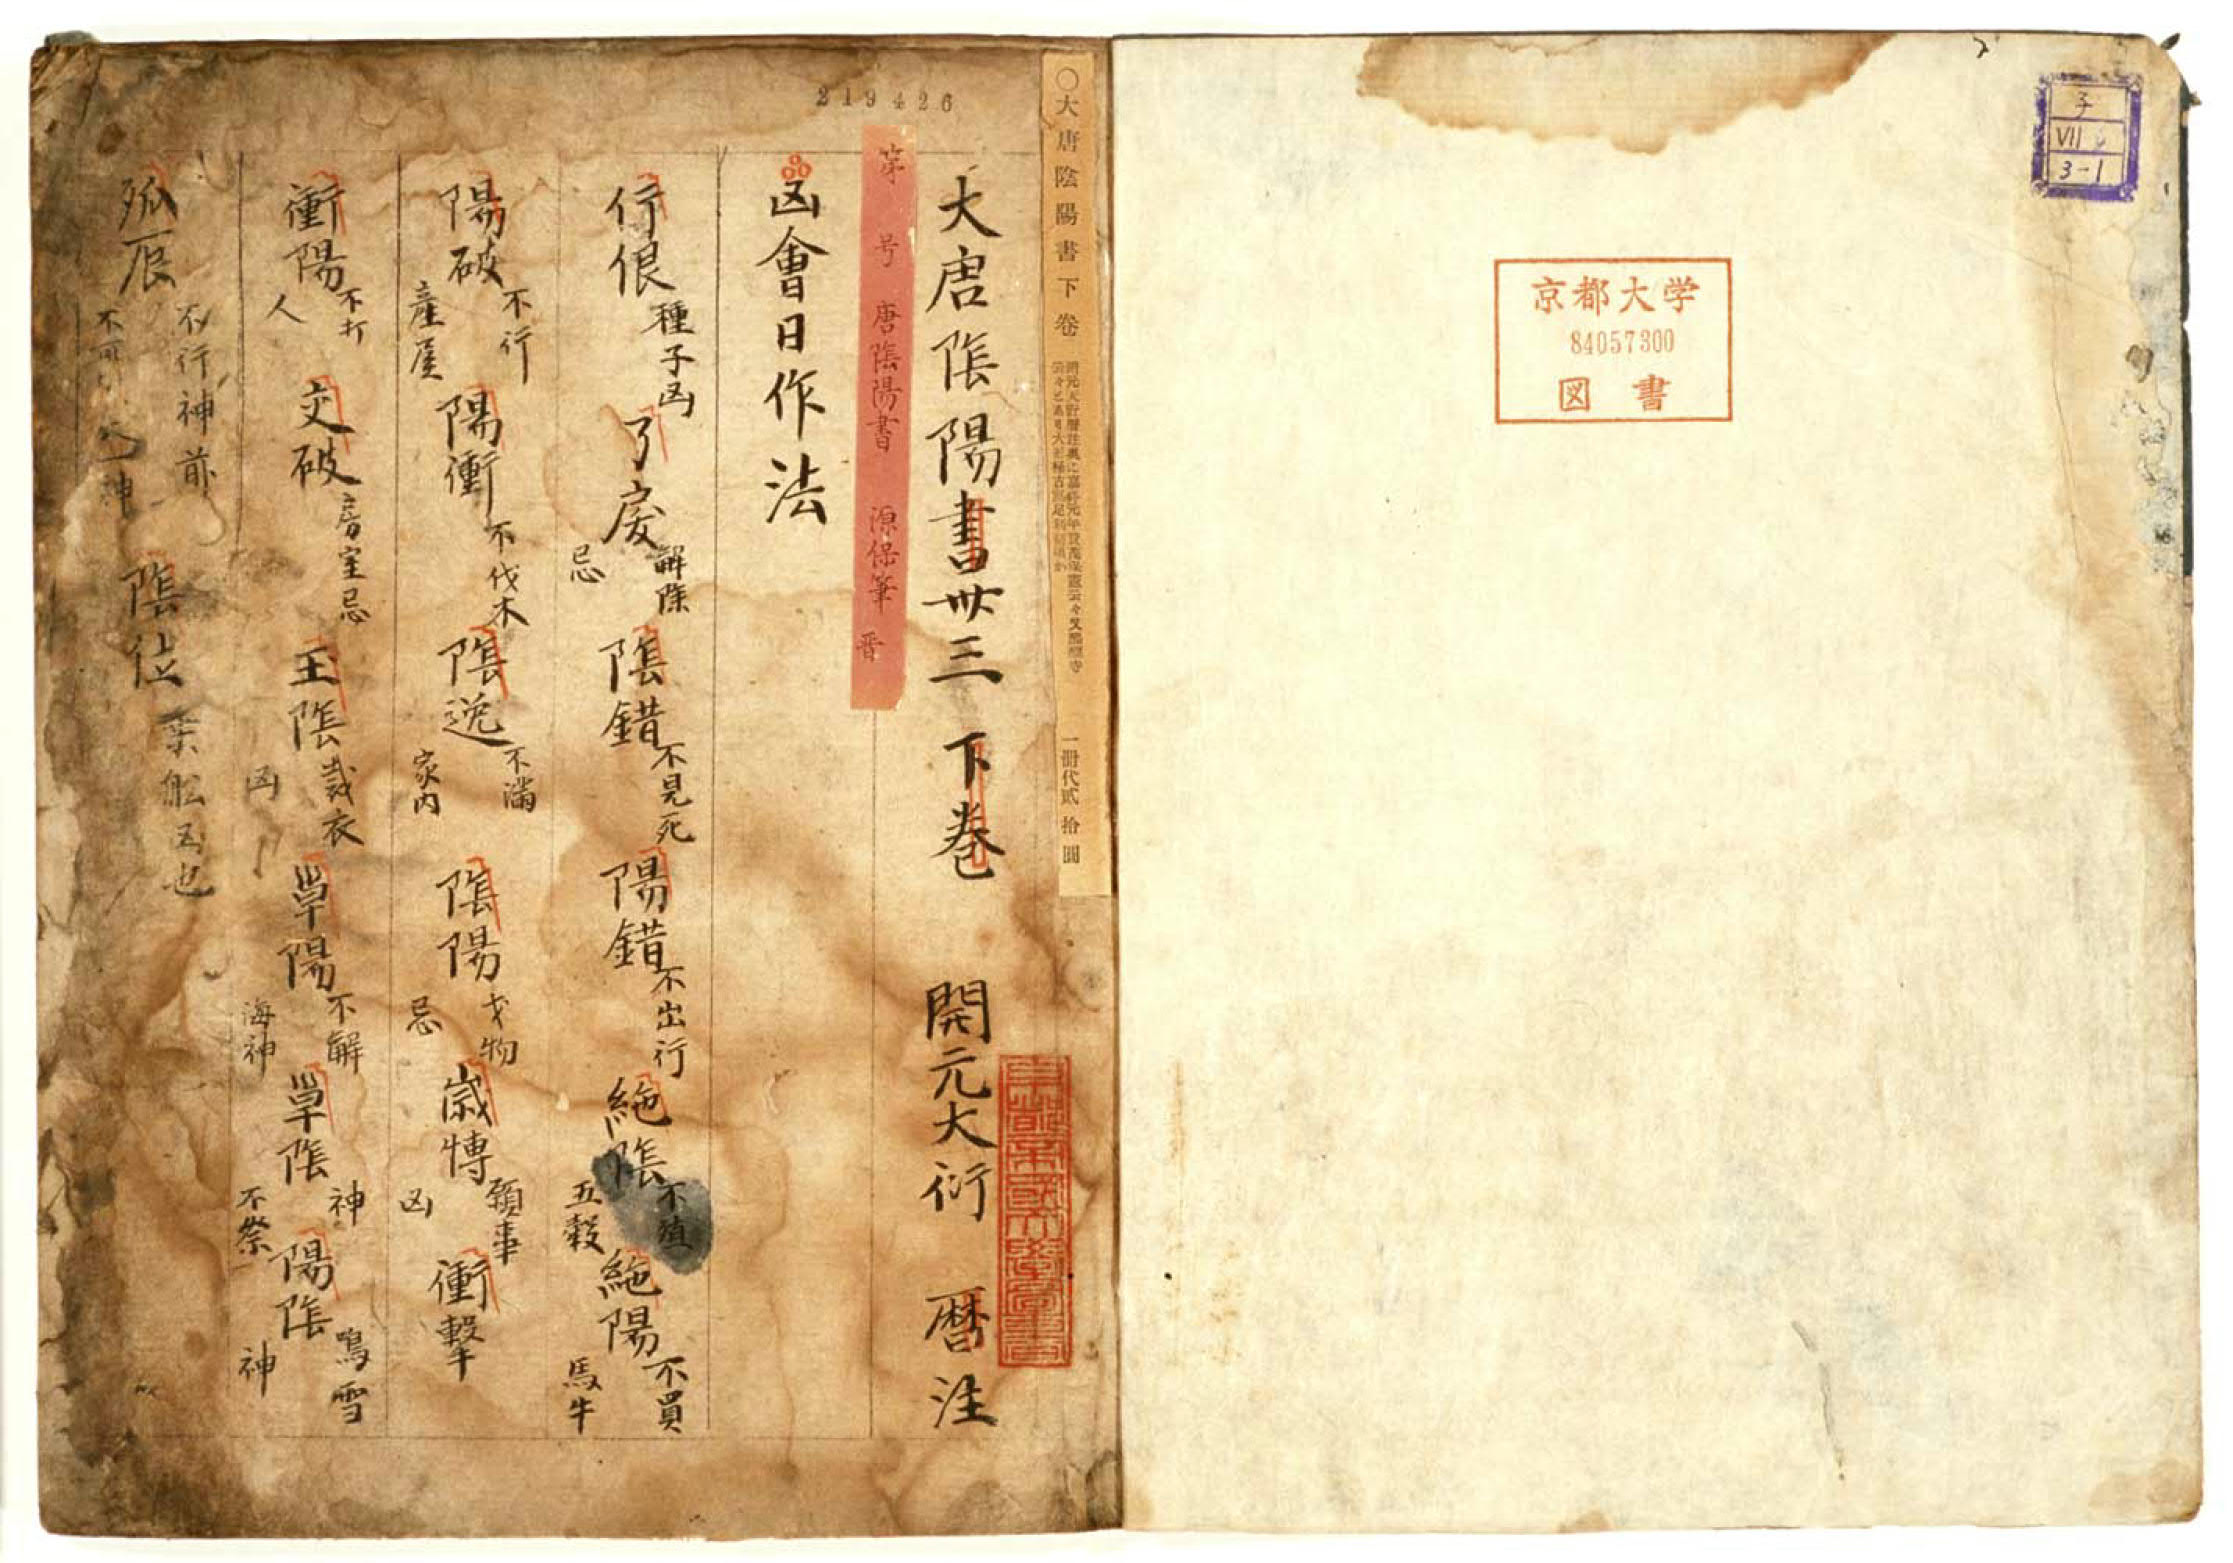 子
VII
3-1
京都大学
84057300
図書
〇大唐陰陽書下卷
一冊代貳拾圓
219426
大唐陰陽書卅三 下卷 開元大衍 暦注
第 号 唐陰陽書 源保筆 晋
凶會日作法
行佷 種子凶 了戾 解除忌 陰錯 不見死 陽錯 不出行 絶陰 不殖五穀 絶陽 不買馬牛
陽破 不行產屋 陽衝 不伐木 陰逃 不滿家內 陰陽 戈物忌 歳慱 領事凶 衝擊
衝陽 不打人 交破 房室忌 玉陰 裁衣凶 單陽 不解海神 單陰 神不祭 陽陰 鳴雪神
孤辰 不行神前 陰位 乗舩凶也